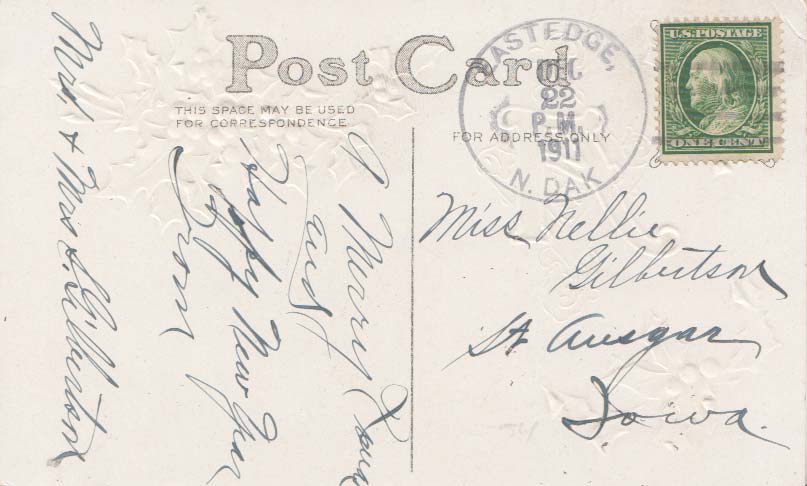 Post Card
THIS SPACE MAY BE USED
FOR CORRESPONDENCE.
FOR ADDRESS ONLY
EASTEDGE,
DEC
22
P.M
1911
N. DAK
U.S. POSTAGE
ONE CENT
A Merry Xmas
and
Happy New Year
From
Mr. & Mrs S. Gilbertson
Miss Nellie
Gilbertson
St Ansgar
Iowa.